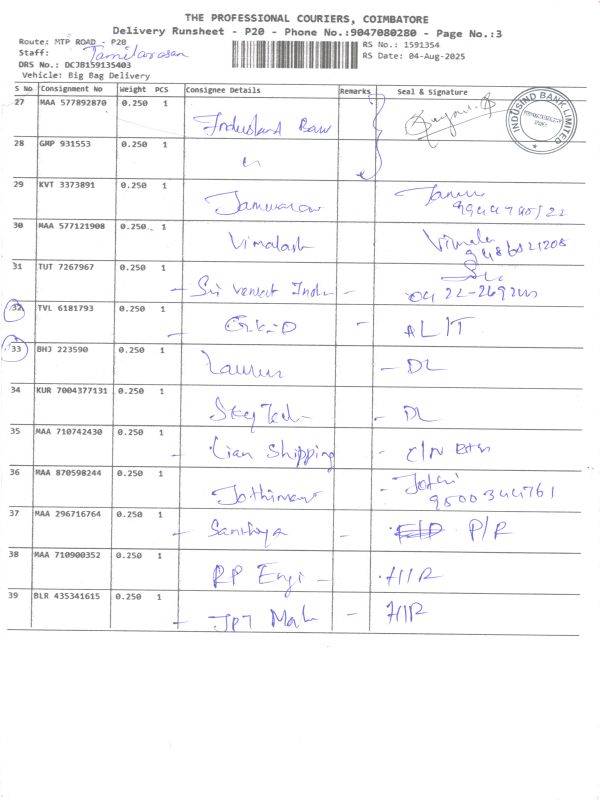 THE PROFESSIONAL COURIERS, COIMBATORE
Delivery Runsheet - P20 - Phone No.:9047080280 - Page No.:3
Route: MTP ROAD - P20
RS No.: 1591354
Staff: Tamilarasan
RS Date: 04-Aug-2025
DRS No.: DCJB159135403
Vehicle: Big Bag Delivery
S No Consignment No Weight PCS Consignee Details Remarks Seal & Signature
27 MAA 577892870 0.250 1
INDUSIND BANK LIMITED
28 GMP 931553 0.250 1
29 KVT 3373891 0.250 1
30 MAA 577121908 0.250 1
Vimalash Vimala
31 TUT 7267967 0.250 1
- Sri Venkat Indu -
32 TVL 6181793 0.250 1
33 BHJ 223590 0.250 1
- DL
34 KUR 7004377131 0.250 1
Sky Tech - DL
35 MAA 710742430 0.250 1
- Cian Shipping - C/N
36 MAA 870598244 0.250 1
Jothimani - Jothi
9500344761
37 MAA 296716764 0.250 1
- Sandhya - P/R
38 MAA 710900352 0.250 1
RP Engi -
39 BLR 435341615 0.250 1